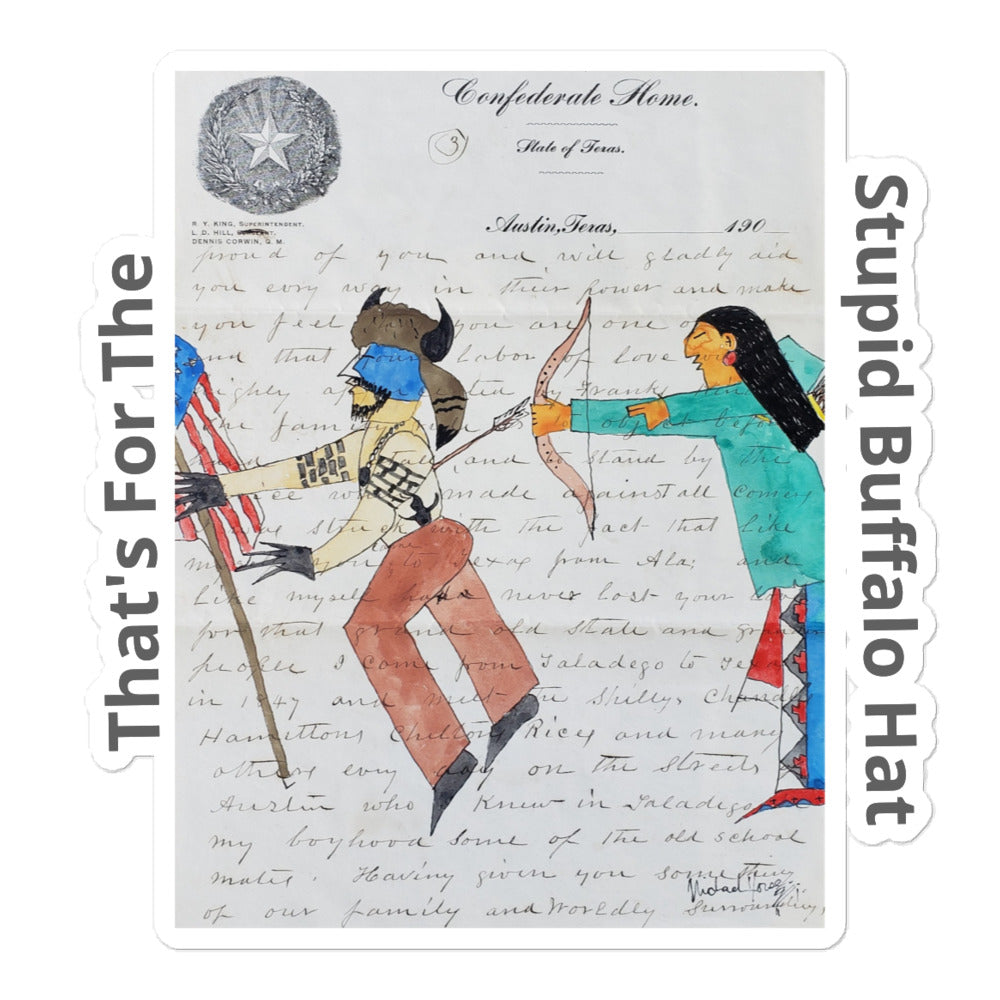 That's For The
Stupid Buffalo Hat
Confederate Home.
3
State of Texas.
R. Y. KING, SUPERINTENDENT.
L. D. HILL,
DENNIS CORWIN, Q. M.
Austin, Texas, 190
proud of you and will gladly aid
you evry way in their power and make
you feel you are one
and that your labor of love
by Franks
family object before
and to stand by the
made against all comers
struck with the fact that like
to Texas from Ala; and
like myself have never lost your love
for that grand old state and grander
people I come from Taladego to Texas
in 1947 and met the Shelleys Chandlers
Hamiltons Chiltons Rices and many
others evry day on the streets
Austin who I knew in Taladego
my boyhood some of the old school
mates. Having given you something
of our family and Worldly surroundings,